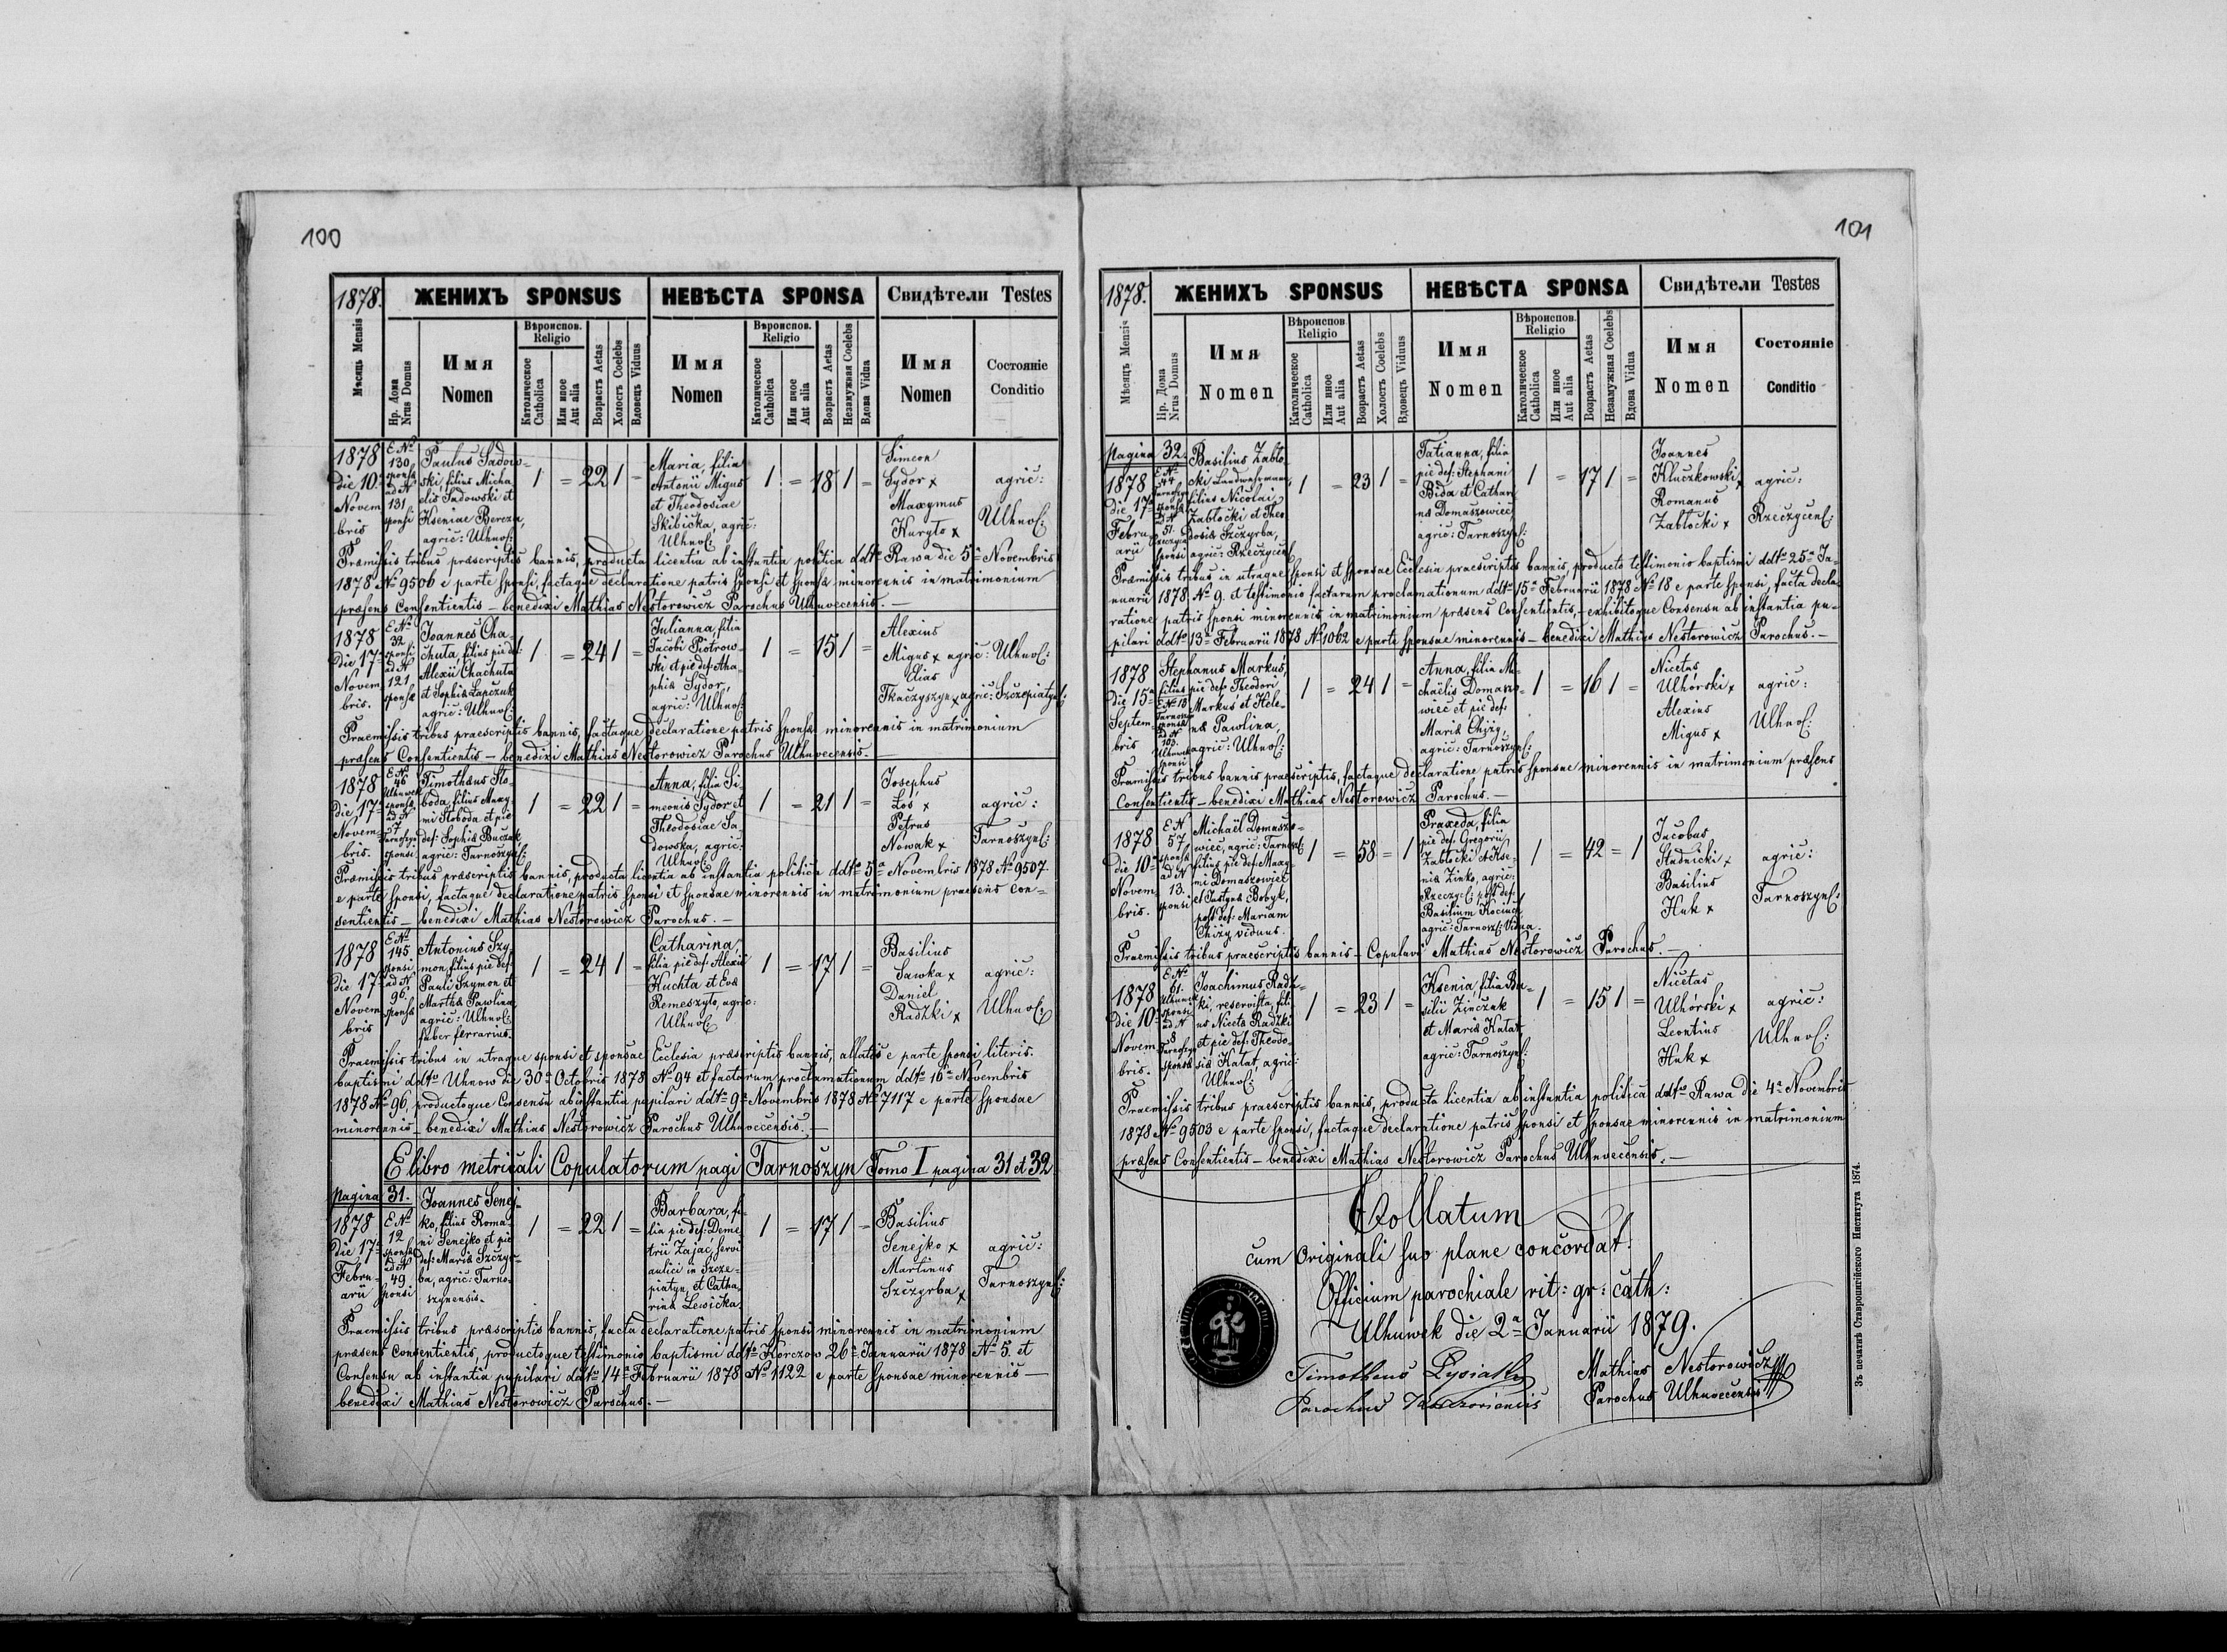 100
1878.
ЖЕНИХЪ SPONSUS
НЕВѢСТА SPONSA
Свидѣтели Testes
Мѣсяцъ Mensis
Нр. Дома
Nrus Domus
Имя
Nomen
Вѣроиспов.
Religio
Католическое
Catholica
Или иное
Aut alia
Возрастъ Aetas
Холостъ Coelebs
Вдовецъ Viduus
Имя
Nomen
Вѣроиспов.
Religio
Католическое
Catholica
Или иное
Aut alia
Возрастъ Aetas
Незамужная Coelebs
Вдова Vidua
Имя
Nomen
Состояніе
Conditio
1878
die 10ª
Novem
bris
E Nº
130
sponsæ
ad Nº
131
sponsi
Paulus Sadow-
ski, filius Micha
elis Sadowski et
Kseniae Bercza,
agric: Ulhnov:
1 = 22 1 =
Maria, filia
Antonii Migus
et Theodosiae
Skibicka, agric:
Ulhnov:
1 = 18 1 =
Simeon
Sydor x
Maxymus
Kuryło x
agric:
Ulhnov:
Præmissis tribus præscriptis bannis, producta licentia ab instantia politica ddtº Rawa die 5ª Novembris
1878 Nº 9506 e parte sponsi, factaque declaratione patris sponsi et sponsæ minorennis in matrimonium
præsens Consentientis – benedixi Mathias Nestorowicz Parochus Ulhuvecensis. –
1878
die 17ª
Novem
bris.
E Nº
32
sponsi
ad Nº
121
sponsæ
Joannes Cha-
chuta, filius pie def:
Alexii Chachuta
et Sophiæ Łapczuk
agric: Ulhnov:
1 = 24 1 =
Julianna, filia
Jacobi Piotrow-
ski et pie def: Aha-
phiæ Sydor,
agric: Ulhnov:
1 = 15 1 =
Alexius
Migus x agric: Ulhnov:
Elias
Tkaczyszyn x agric: Szczepiatyn:
Praemissis tribus praescriptis bannis, factaque declaratione patris sponsæ minorennis in matrimonium
præsens Consentientis – benedixi Mathias Nestorowicz Parochus Ulhuvecensis. –
1878
die 17ª
Novem-
bris.
E Nº
46
Ulhuwek
sponsæ
ad Nº
7
Tarnoszyn
sponsi
Timothæus Sło-
boda, filius Maxy
mi Słoboda et pie
def: Sophiæ Buczak
agric: Tarnoszyn:
1 = 22 1 =
Anna, filia Si-
meonis Sydor et
Theodosiae Sa-
dowska, agric:
Ulhnov:
1 = 21 1 =
Josephus
Łoś x
Petrus
Nowak x
agric:
Tarnoszyn:
Præmissis tribus præscriptis bannis, producta licentia ab instantia politica ddtº 5ª Novembris 1878 Nº 9507.
e parte sponsi, factaque declaratione patris sponsi et sponsae minorennis in matrimonium praesens con-
sentientis – benedixi Mathias Nestorowicz Parochus. –
1878
die 17ª
Novem
bris
E Nº
145
sponsi
ad Nº
96.
sponsæ
Antonius Szy-
mon, filius pie def:
Pauli Szymon et
Marthæ Pawlina
agric: Ulhnov:
faber ferrarius.
1 = 24 1 =
Catharina,
filia pie def: Alexii
Kuchta et Evæ
Remeszyło, agric:
Ulhnov:
1 = 17 1 =
Basilius
Sawka x
Daniel
Radzki x
agric:
Ulhnov:
Praemissis tribus in utraque sponsi et sponsae Ecclesia præscriptis bannis, allatis e parte sponsi literis.
baptismi ddtº Uhnow die 30ª Octobris 1878 Nº 94 et factarum proclamationum ddtº 16ª Novembris
1878 Nº 96, productoque Consensu ab instantia pupilari ddtº 9ª Novembris 1878 Nº 7117 e parte sponsae
minorennis – benedixi Mathias Nestorowicz Parochus Ulhuvecensis. –
E libro metricali Copulatorum pagi Tarnoszyn Tomo I pagina 31 et 32
pagina 31.
1878
die 17ª
Febru-
arii
E Nº
12
sponsæ
ad Nº
49
sponsi
Joannes Senej-
ko, filius Roma-
ni Senejko et pie
def: Mariæ Szczyr-
ba, agric: Tarno-
szynensis.
1 = 22 1 =
Barbara, fi-
lia pie def: Deme
trii Zając, servi
aulici in Szcze-
piatyn, et Catha-
rinæ Lewicka
1 = 17 1 =
Basilius
Senejko x
Martinus
Szczyrba x
agric:
Tarnoszyn:
Praemissis tribus præscriptis bannis, facta declaratione patris sponsi minorennis in matrimonium
præsens consentientis, productoque testimonio baptismi ddtº Korczow 26ª Januarii 1878 Nº 5. et
Consensu ab instantia pupilari ddtº 14ª Februarii 1878 Nº 1122 e parte sponsae minorennis –
benedixi Mathias Nestorowicz Parochus. –
101
1878.
ЖЕНИХЪ SPONSUS
НЕВѢСТА SPONSA
Свидѣтели Testes
Мѣсяцъ Mensis
Нр. Дома
Nrus Domus
Имя
Nomen
Вѣроиспов.
Religio
Католическое
Catholica
Или иное
Aut alia
Возрастъ Aetas
Холостъ Coelebs
Вдовецъ Viduus
Имя
Nomen
Вѣроиспов.
Religio
Католическое
Catholica
Или иное
Aut alia
Возрастъ Aetas
Незамужная Coelebs
Вдова Vidua
Имя
Nomen
Состояніе
Conditio
pagina 32.
1878
die 17ª
Febru-
arii
E Nº
44
Tarnoszyn
sponsæ
ad Nº
51.
Rzeczyca
sponsi
Basilius Zabło-
cki Landwehrmann,
filius Nicolai
Zabłocki et Theo
dosiæ Szczyrba,
agric: Rzeczycen:
1 = 23 1 =
Tatianna, filia
pie def: Stephani
Bida et Cathari
næ Domaszowiec
agric: Tarnoszyn:
1 = 17 1 =
Joannes
Kluczkowski x
Romanus
Zabłocki x
agric:
Rzeczycen:
Præmissis tribus in utraque sponsi et sponsae Ecclesia praescriptis bannis, producto testimonio baptismi ddtº 25ª Ja-
nuarii 1878 Nº 9. et testimonio factarum proclamationum ddtº 15ª Februarii 1878 Nº 18 e parte sponsi, facta decla-
ratione patris sponsi minorennis in matrimonium præsens Consentientis, – exhibitoque Consensu ab instantia pu-
pilari ddtº 13ª Februarii 1878 Nº 1062 e parte sponsae minorennis – benedixi Mathias Nestorowicz Parochus. –
1878
die 15ª
Septem
bris
E Nº 18
Tarnoszyn
sponsæ
ad Nº
103.
Ulhuwek
sponsi
Stephanus Markuś,
filius pie def: Theodori
Markuś et Hele-
næ Pawlina,
agric: Ulhnov:
1 = 24 1 =
Anna, filia Mi-
chaëlis Domaszo-
wiec et pie def:
Mariæ Chyży,
agric: Tarnoszyn:
1 = 16 1 =
Nicetas
Ulhórski x
Alexius
Migus x
agric:
Ulhnov:
Præmissis tribus bannis praescriptis, factaque declaratione patris sponsae minorennis in matrimonium præsens
Consentientis – benedixi Mathias Nestorowicz Parochus. –
1878
die 10ª
Novem
bris.
E Nº
57
sponsæ
ad Nº
13.
sponsi
Michaël Domaszo-
wiec, agric: Tarnosz:
filius pie def: Maxy
mi Domaszowiec
et Justynæ Bobyk,
post def: Mariam
Chiży viduus.
1 = 58 = 1
Praxeda, filia
pie def: Gregorii
Zabłocki et Kse-
niæ Zinko, agric:
Rzeczyc: post def:
Basilium Kociuch
agric: Tarnosz: Vidua.
1 = 42 = 1
Jacobus
Słudnicki x
Basilius
Huk x
agric:
Tarnoszyn:
Praemissis tribus praescriptis bannis – Copulavi Mathias Nestorowicz Parochus. –
1878
die 10ª
Novem
bris.
E Nº
61.
Ulhuwek
sponsi
ad Nº
8
Tarnoszyn
sponsæ
Joachimus Radz-
ki, reservista, fili
us Nicetæ Radzki
et pie def: Theodo-
siæ Kałat, agric:
Ulhnov:
1 = 23 1 =
Ksenia, filia Ba-
silii Zińczuk
et Mariæ Kałat
agric: Tarnoszyn:
1 = 15 1 =
Nicetas
Ulhórski x
Leontius
Huk x
agric:
Ulhnov:
Praemissis tribus praescriptis bannis, producta licentia ab instantia politica ddtº Rawa die 4ª Novembris
1878 Nº 9503 e parte sponsi, factaque declaratione patris sponsi et sponsae minorennis in matrimonium
præsens Consentientis – benedixi Mathias Nestorowicz Parochus Ulhuvecensis. –
Collatum
cum Originali suo plane concordat.
Officium parochiale rit: gr: cath:
Ulhuwek die 2ª Januarii 1879.
Timotheus
Mathias Nestorowicz
Parochus
Parochus Ulhuvecensis
Зъ печатнѣ Ставропигійского Института 1874.